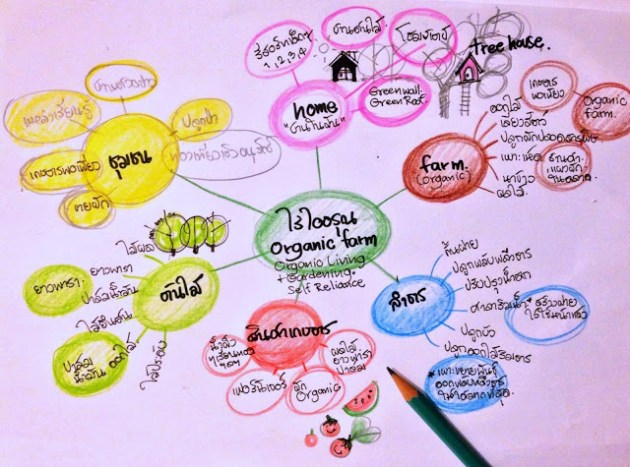 ไร่ไออรุณ
Organic farm
Organic Living
+ Gardening.
Self Reliance
home
"บ้านฉันฉัน"
รีสอร์ทเช็ค
1, 2, 3, 4
บ้านต้นไม้
โฮมสเตย์
tree house.
Green wall.
Green Roof.
farm.
(organic)
ดอกไม้
เลี้ยงสัตว์
ปลูกผักปลอดสารพิษ
เพาะเห็ด
นาข้าว
ผลไม้
เกษตร
พอเพียง
Organic
farm.
ลำธาร
กั้นฝาย
ปลูกพลับพลึงธาร
ปรับปรุงน้ำตก
ศาลาริมน้ำ
*สร้างฝาย
ปลูกบัว
ปลูกดอกไม้ริมธาร
*เพาะขยายพันธุ์
สินค้าเกษตร
ผลไม้
ยางพารา
ปาล์ม
ผัก
Organic
เฟอร์นิเจอร์
ต้นไม้
ไม้ผล
ยางพารา
ปาล์มน้ำมัน
ไม้ยืนต้น
ดอกไม้
ไม้ประดับ
ยางพารา
ปาล์ม
น้ำมัน
ชุมชน
แหล่งเรียนรู้
เกษตรพอเพียง
ขายผัก
ปลูกป่า
ท่องเที่ยวเชิงอนุรักษ์